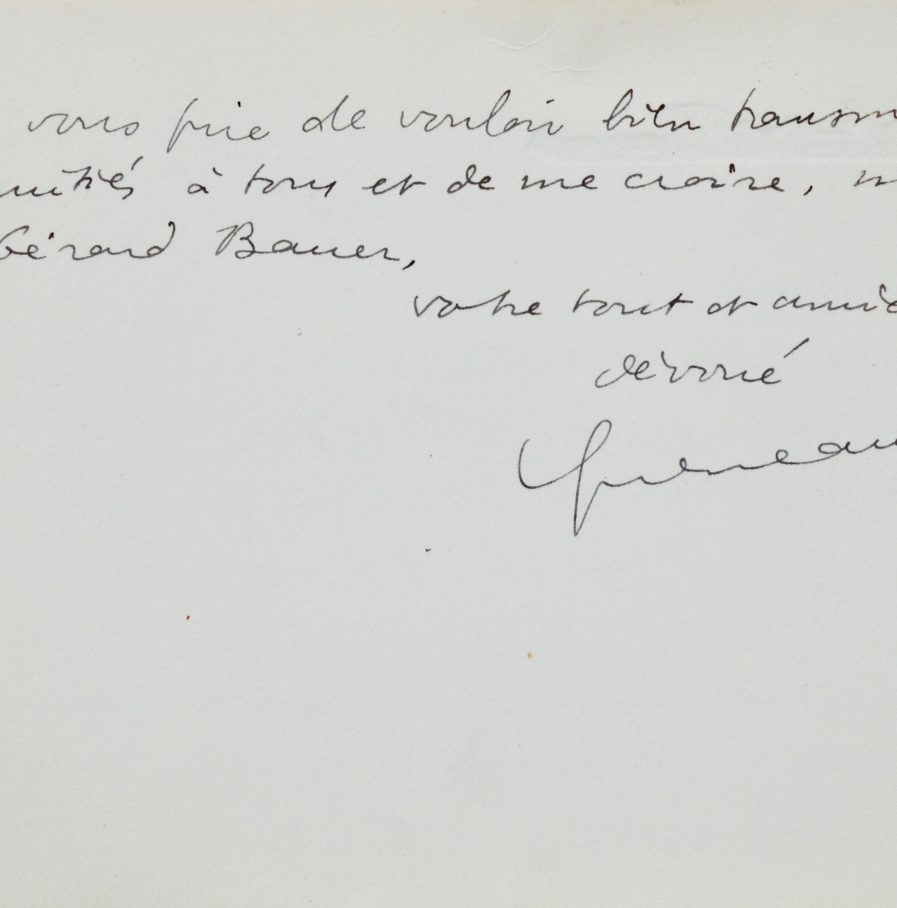 vous prie de vouloir bien transm
mitiés à tous et de me croire, m
Gérard Bauer,
votre tout et amic
dévoué
Queneau